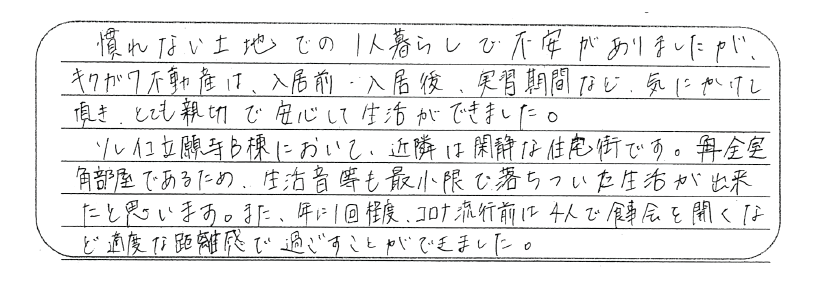 慣れない土地での1人暮らしで不安がありましたが、
キクガワ不動産は、入居前・入居後、実習期間など、気にかけて
頂き、とても親切で安心して生活ができました。
ソレイユ立願寺B棟において、近隣は閑静な住宅街です。再全室
角部屋であるため、生活音等も最小限で落ちついた生活が出来
たと思います。また、年に1回程度、コロナ流行前は4人で食事会を開くな
ど適度な距離感で過ごすことができました。